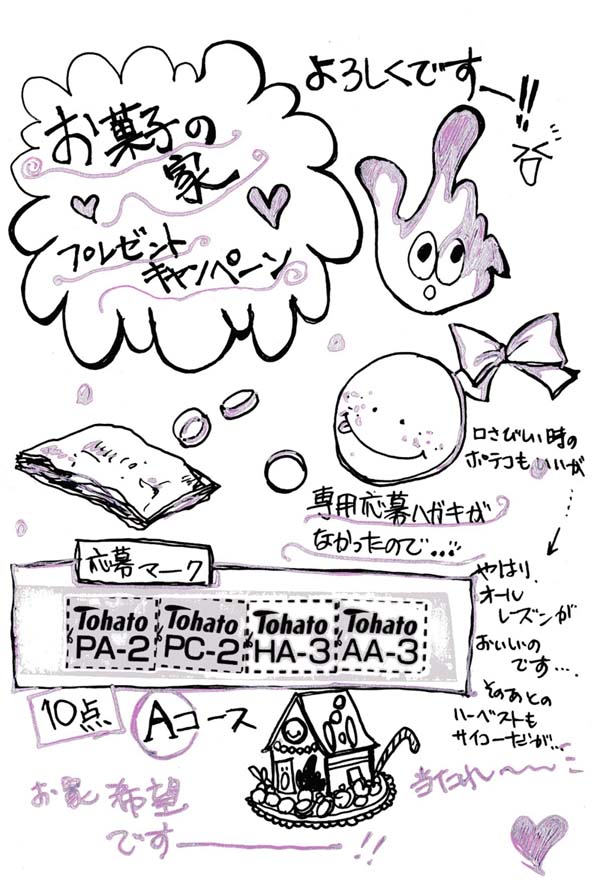 お菓子の
家
プレゼント
キャンペーン
よろしくですー!!
口さびしい時の
ポテコもいいが
……
専用応募ハガキが
なかったので…
やはり、
オール
レーズンが
おいしいの
です….
そのあとの
ハーベストも
サイコーだが…
応募マーク
Tohato
PA-2
Tohato
PC-2
Tohato
HA-3
Tohato
AA-3
10点
Aコース
お家希望
ですー!!
当たれ〜〜〜